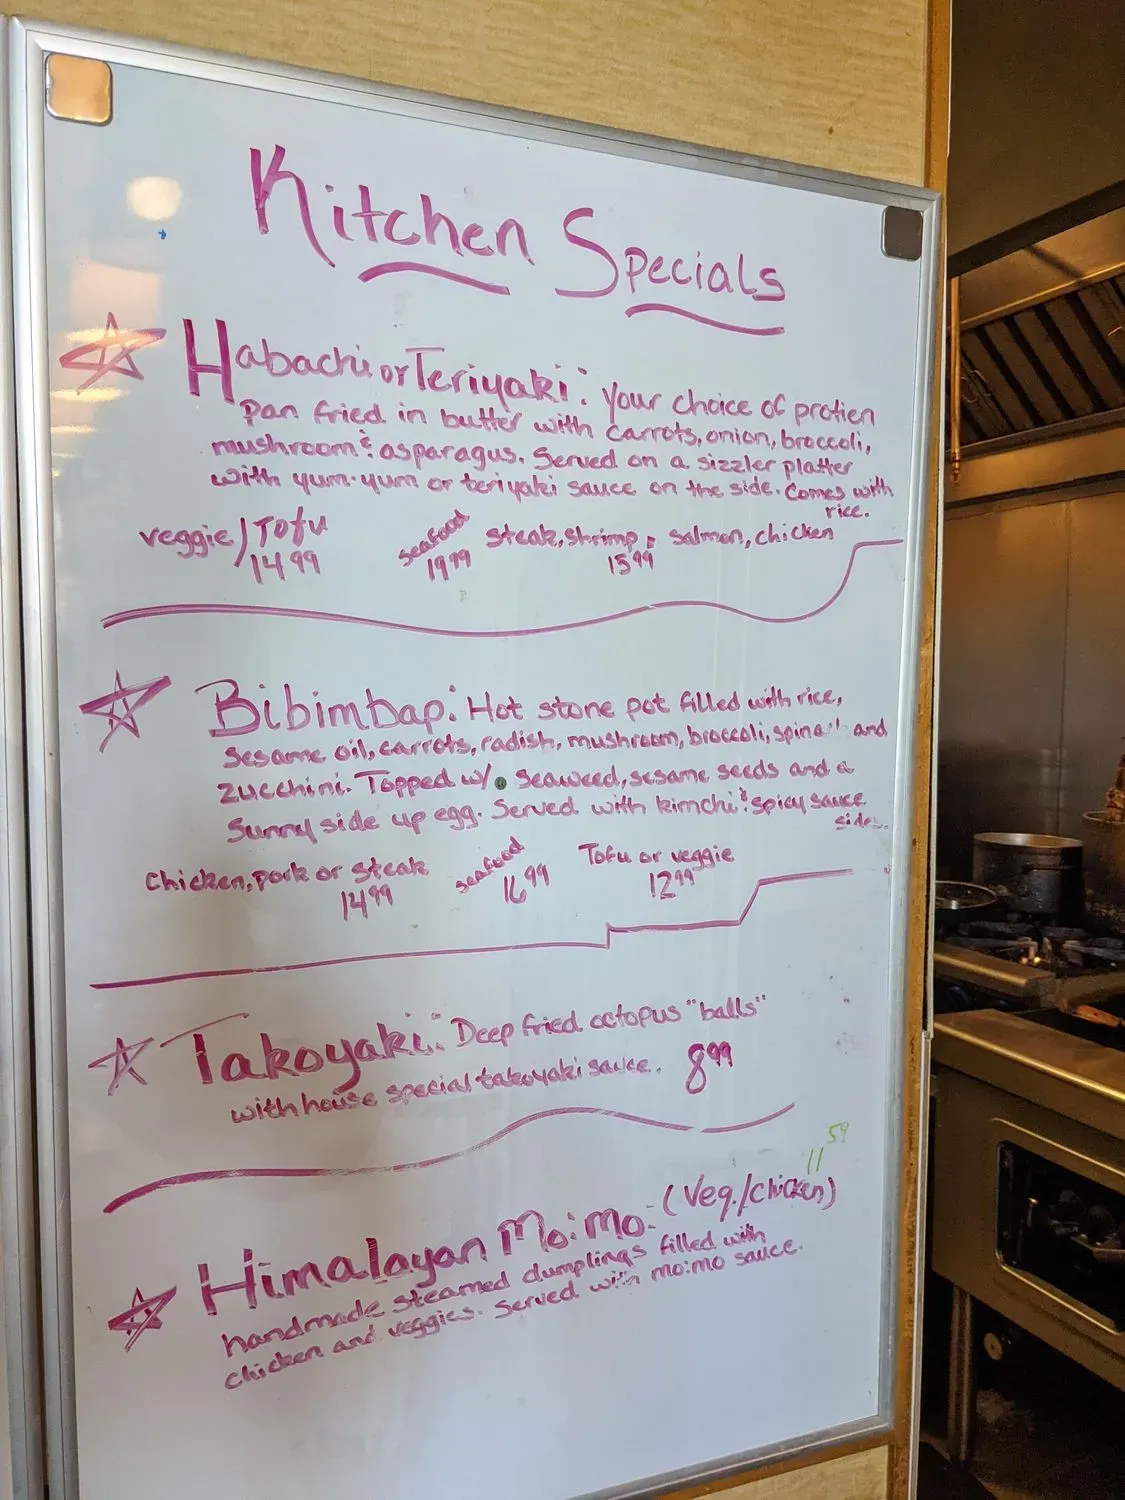 Kitchen Specials
Habachi or Teriyaki: your choice of protien
pan fried in butter with carrots, onion, broccoli,
mushroom & asparagus. Served on a sizzler platter
with yum-yum or teriyaki sauce on the side. Comes with
rice.
veggie/Tofu
14 99
seafood
19 99
steak, shrimp, salmon, chicken
15 99
Bibimbap: Hot stone pot filled with rice,
sesame oil, carrots, radish, mushroom, broccoli, spinach and
zucchini. Topped w/ seaweed, sesame seeds and a
sunny side up egg. Served with kimchi & spicy sauce
side.
Chicken, pork or steak
14 99
seafood
16 99
Tofu or veggie
12 99
Takoyaki: Deep fried octopus "balls"
with house special takoyaki sauce. 8 99
11 59
Himalayan Mo:Mo: (Veg./chicken)
handmade steamed dumplings filled with
chicken and veggies. Served with mo:mo sauce.